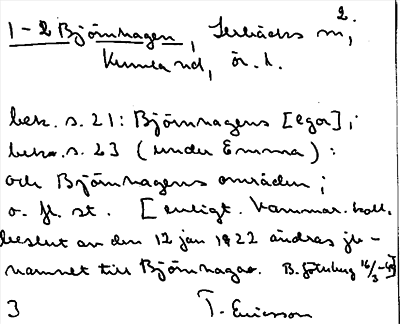 1-2 Björnhagen, Lerbäcks sn, 2.
Kumla hd, ör. l.
besk. s. 21: Björnhagens [egor];
beskr. s. 23 (under Emma):
och Björnhagens områden;
o. fl. st. [enligt. kammar. koll.
beslut av den 12 jan 1922 ändras jb-
namnet till Björnhagen. B. 16/3
3 T. Ericsson